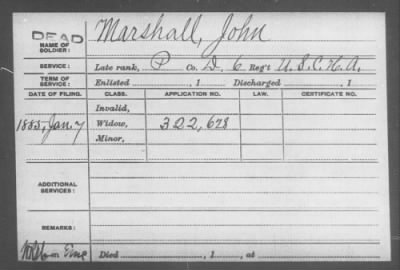 DEAD
NAME OF SOLDIER: Marshall, John
SERVICE: Late rank, P Co. D. 6 Reg't U. S. C. H. A.
TERM OF SERVICE: Enlisted , 1 Discharged , 1
DATE OF FILING. CLASS. APPLICATION NO. LAW. CERTIFICATE NO.
Invalid,
1885, Jan. 7 Widow, 322,628
Minor,
ADDITIONAL SERVICES:
REMARKS:
Died , 1 , at